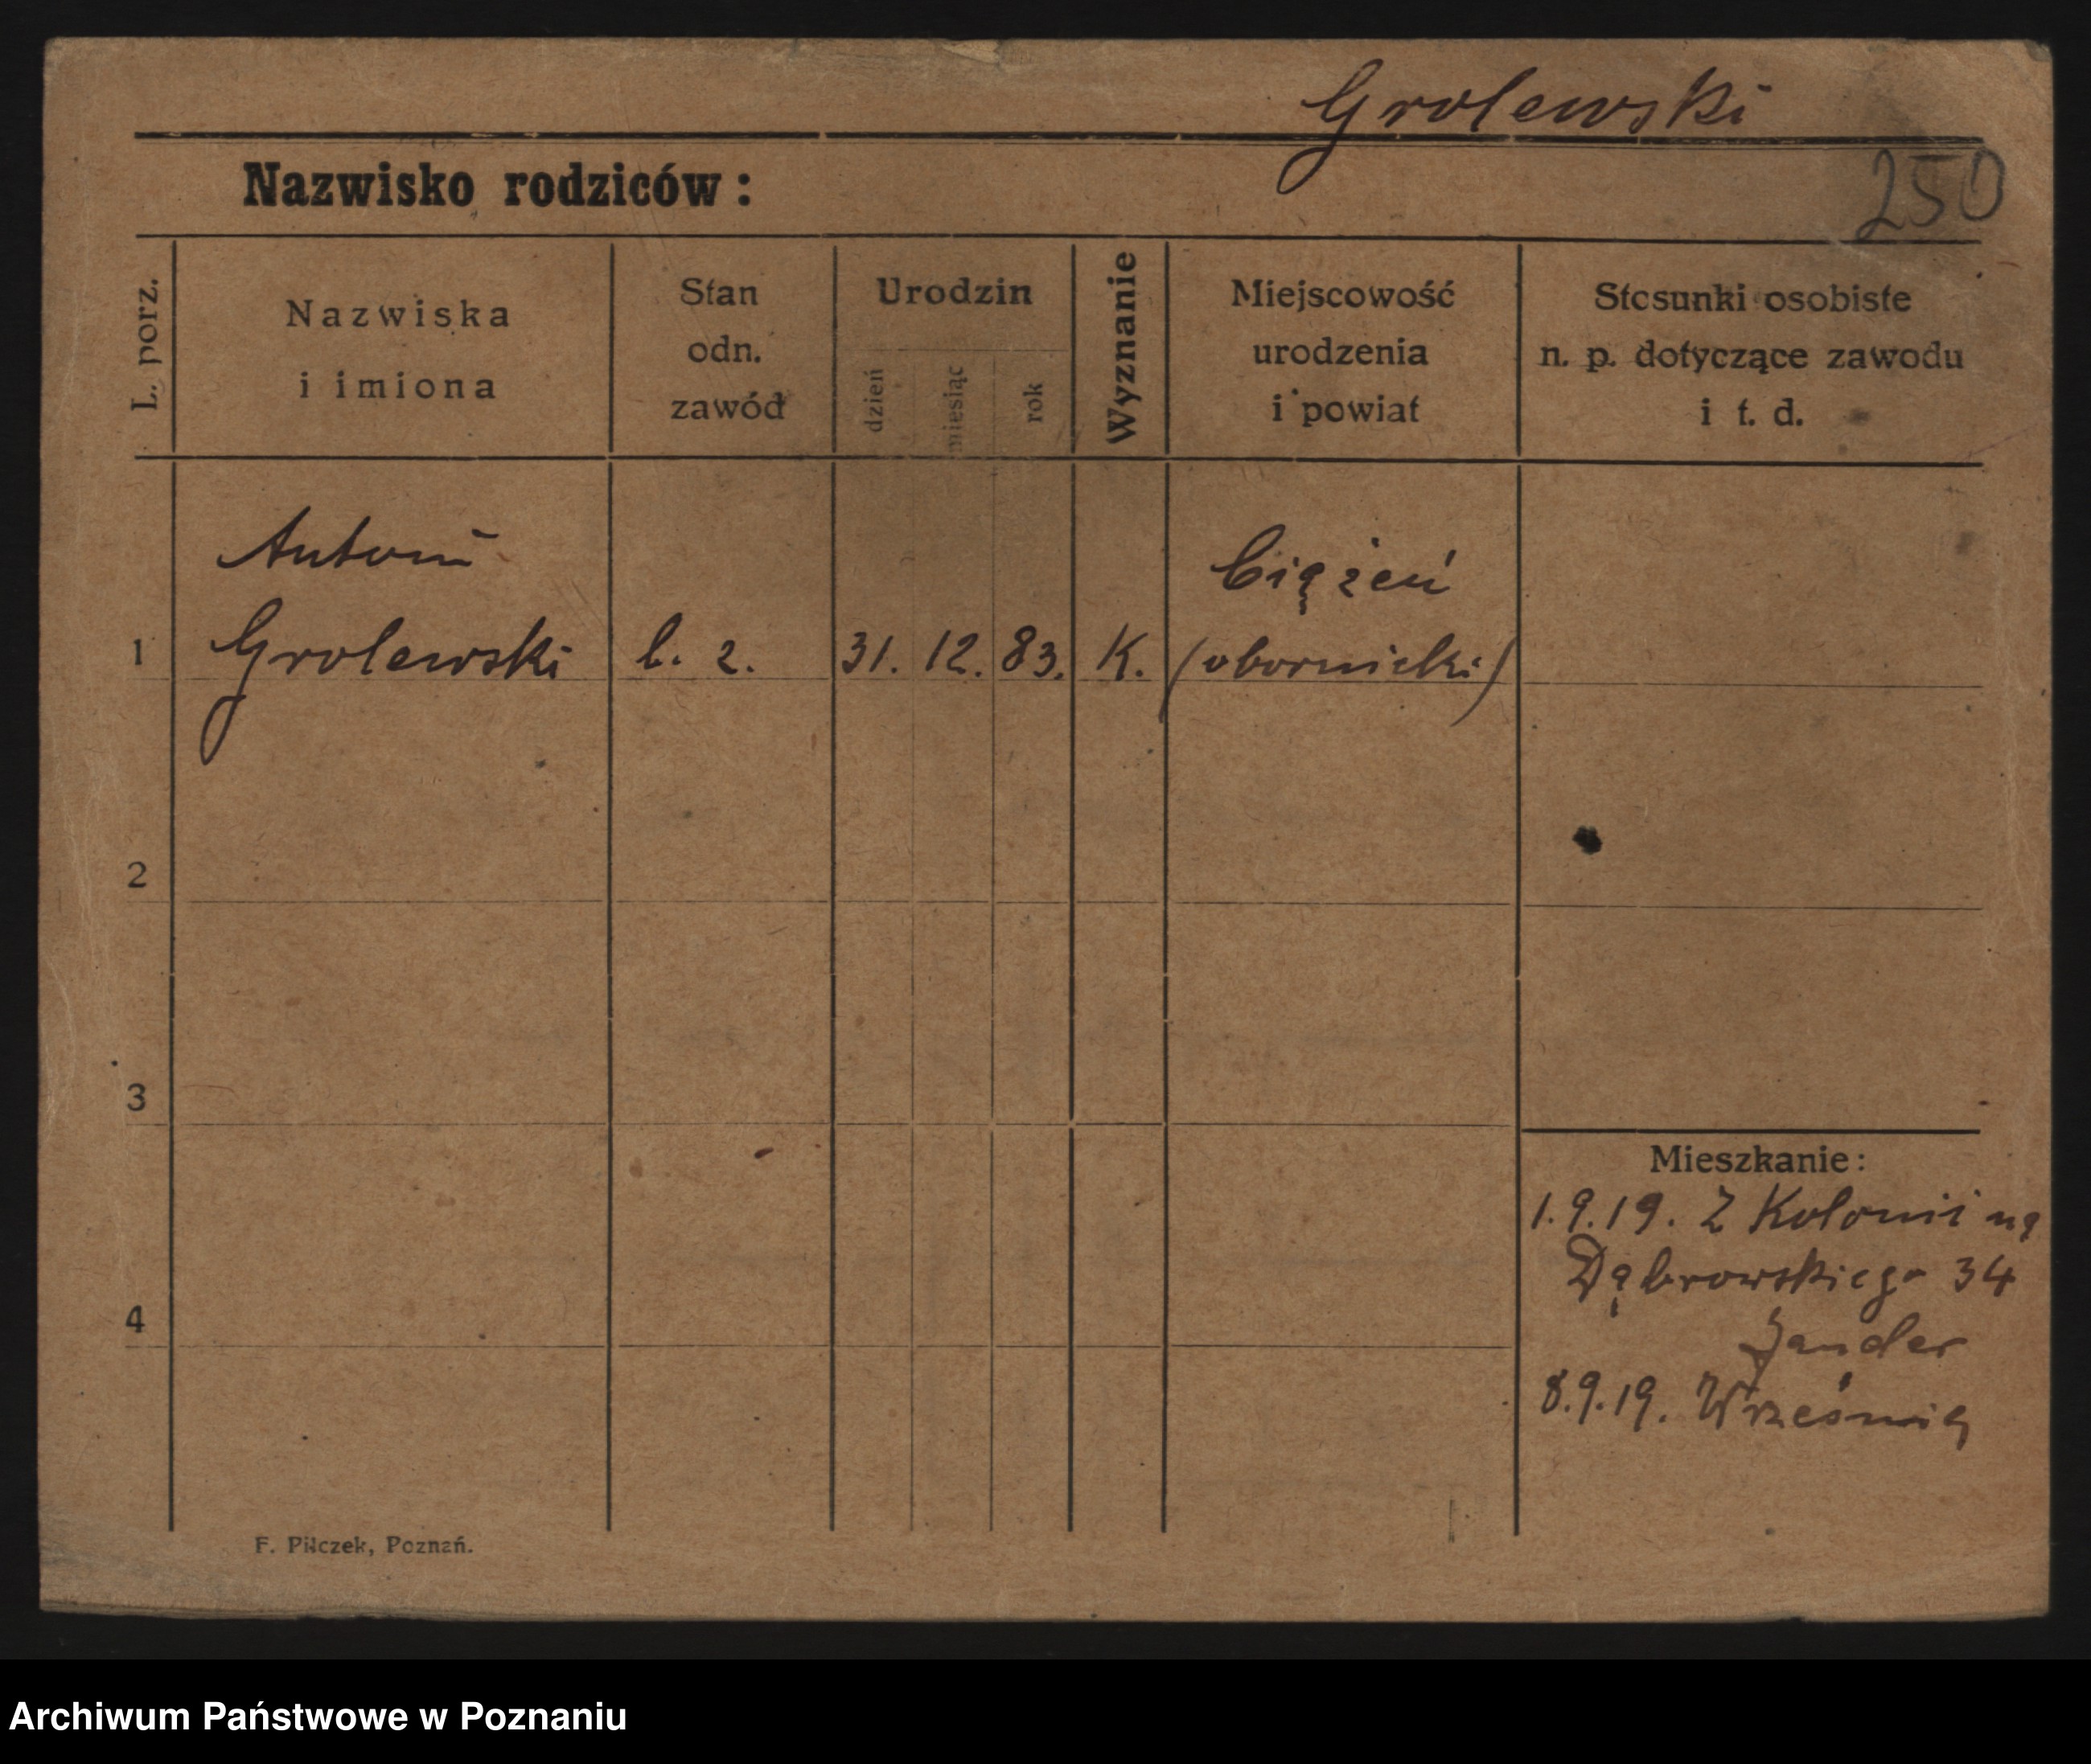 Grolewski
Nazwisko rodziców:
250
L. porz.
Nazwiska
i imiona
Stan
odn.
zawód
Urodzin
dzień
miesiąc
rok
Wyznanie
Miejscowość
urodzenia
i powiat
Stosunki osobiste
n. p. dotyczące zawodu
i t. d.
Antoni
Ciążeń
1 Grolewski b. z. 31. 12. 83. K. (obornicki)
2
3
4
Mieszkanie:
1.9.19. Z Kolonii na
Dąbrowskiego 34
8.9.19. Września
F. Pilczek, Poznań.
Archiwum Państwowe w Poznaniu